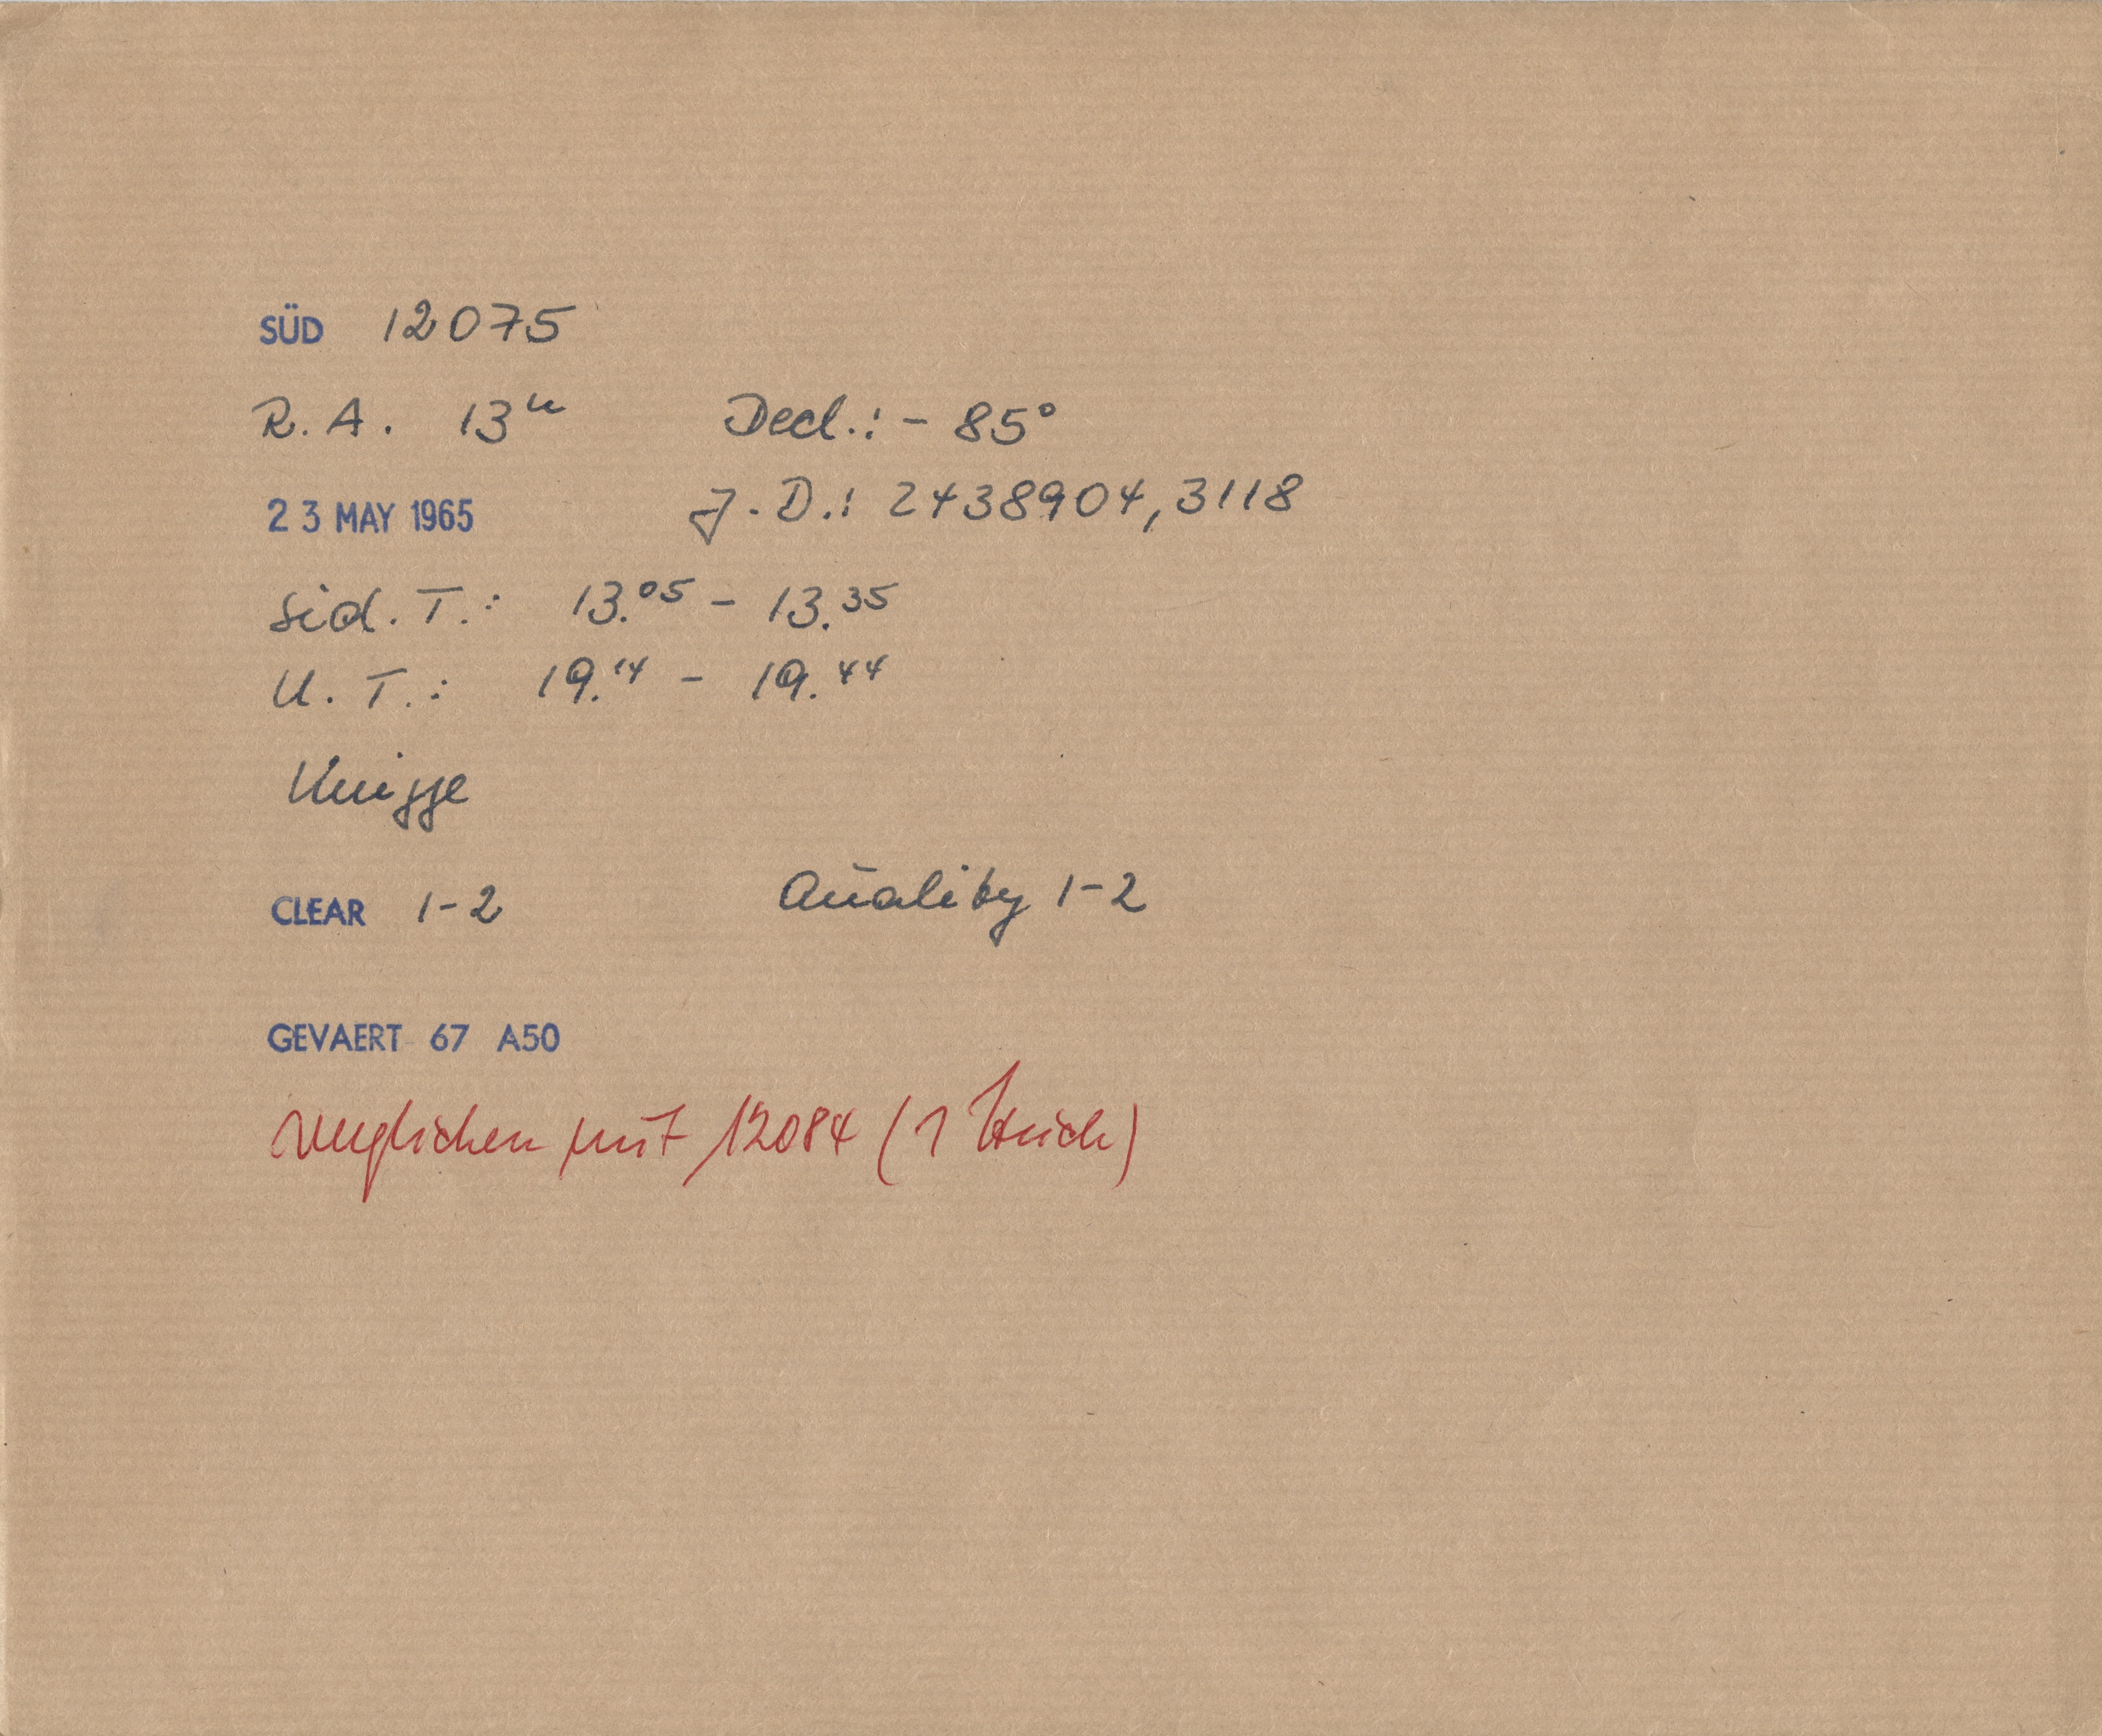 SÜD 12075
R. A. 13ʰ Decl.: - 85°
23 MAY 1965 J. D.: 2438904,3118
Sid. T.: 13.05 - 13.35
U. T.: 19.14 - 19.44
Knigge
CLEAR 1-2 Quality 1-2
GEVAERT 67 A50
verglichen mit 12084 (1 Strich)